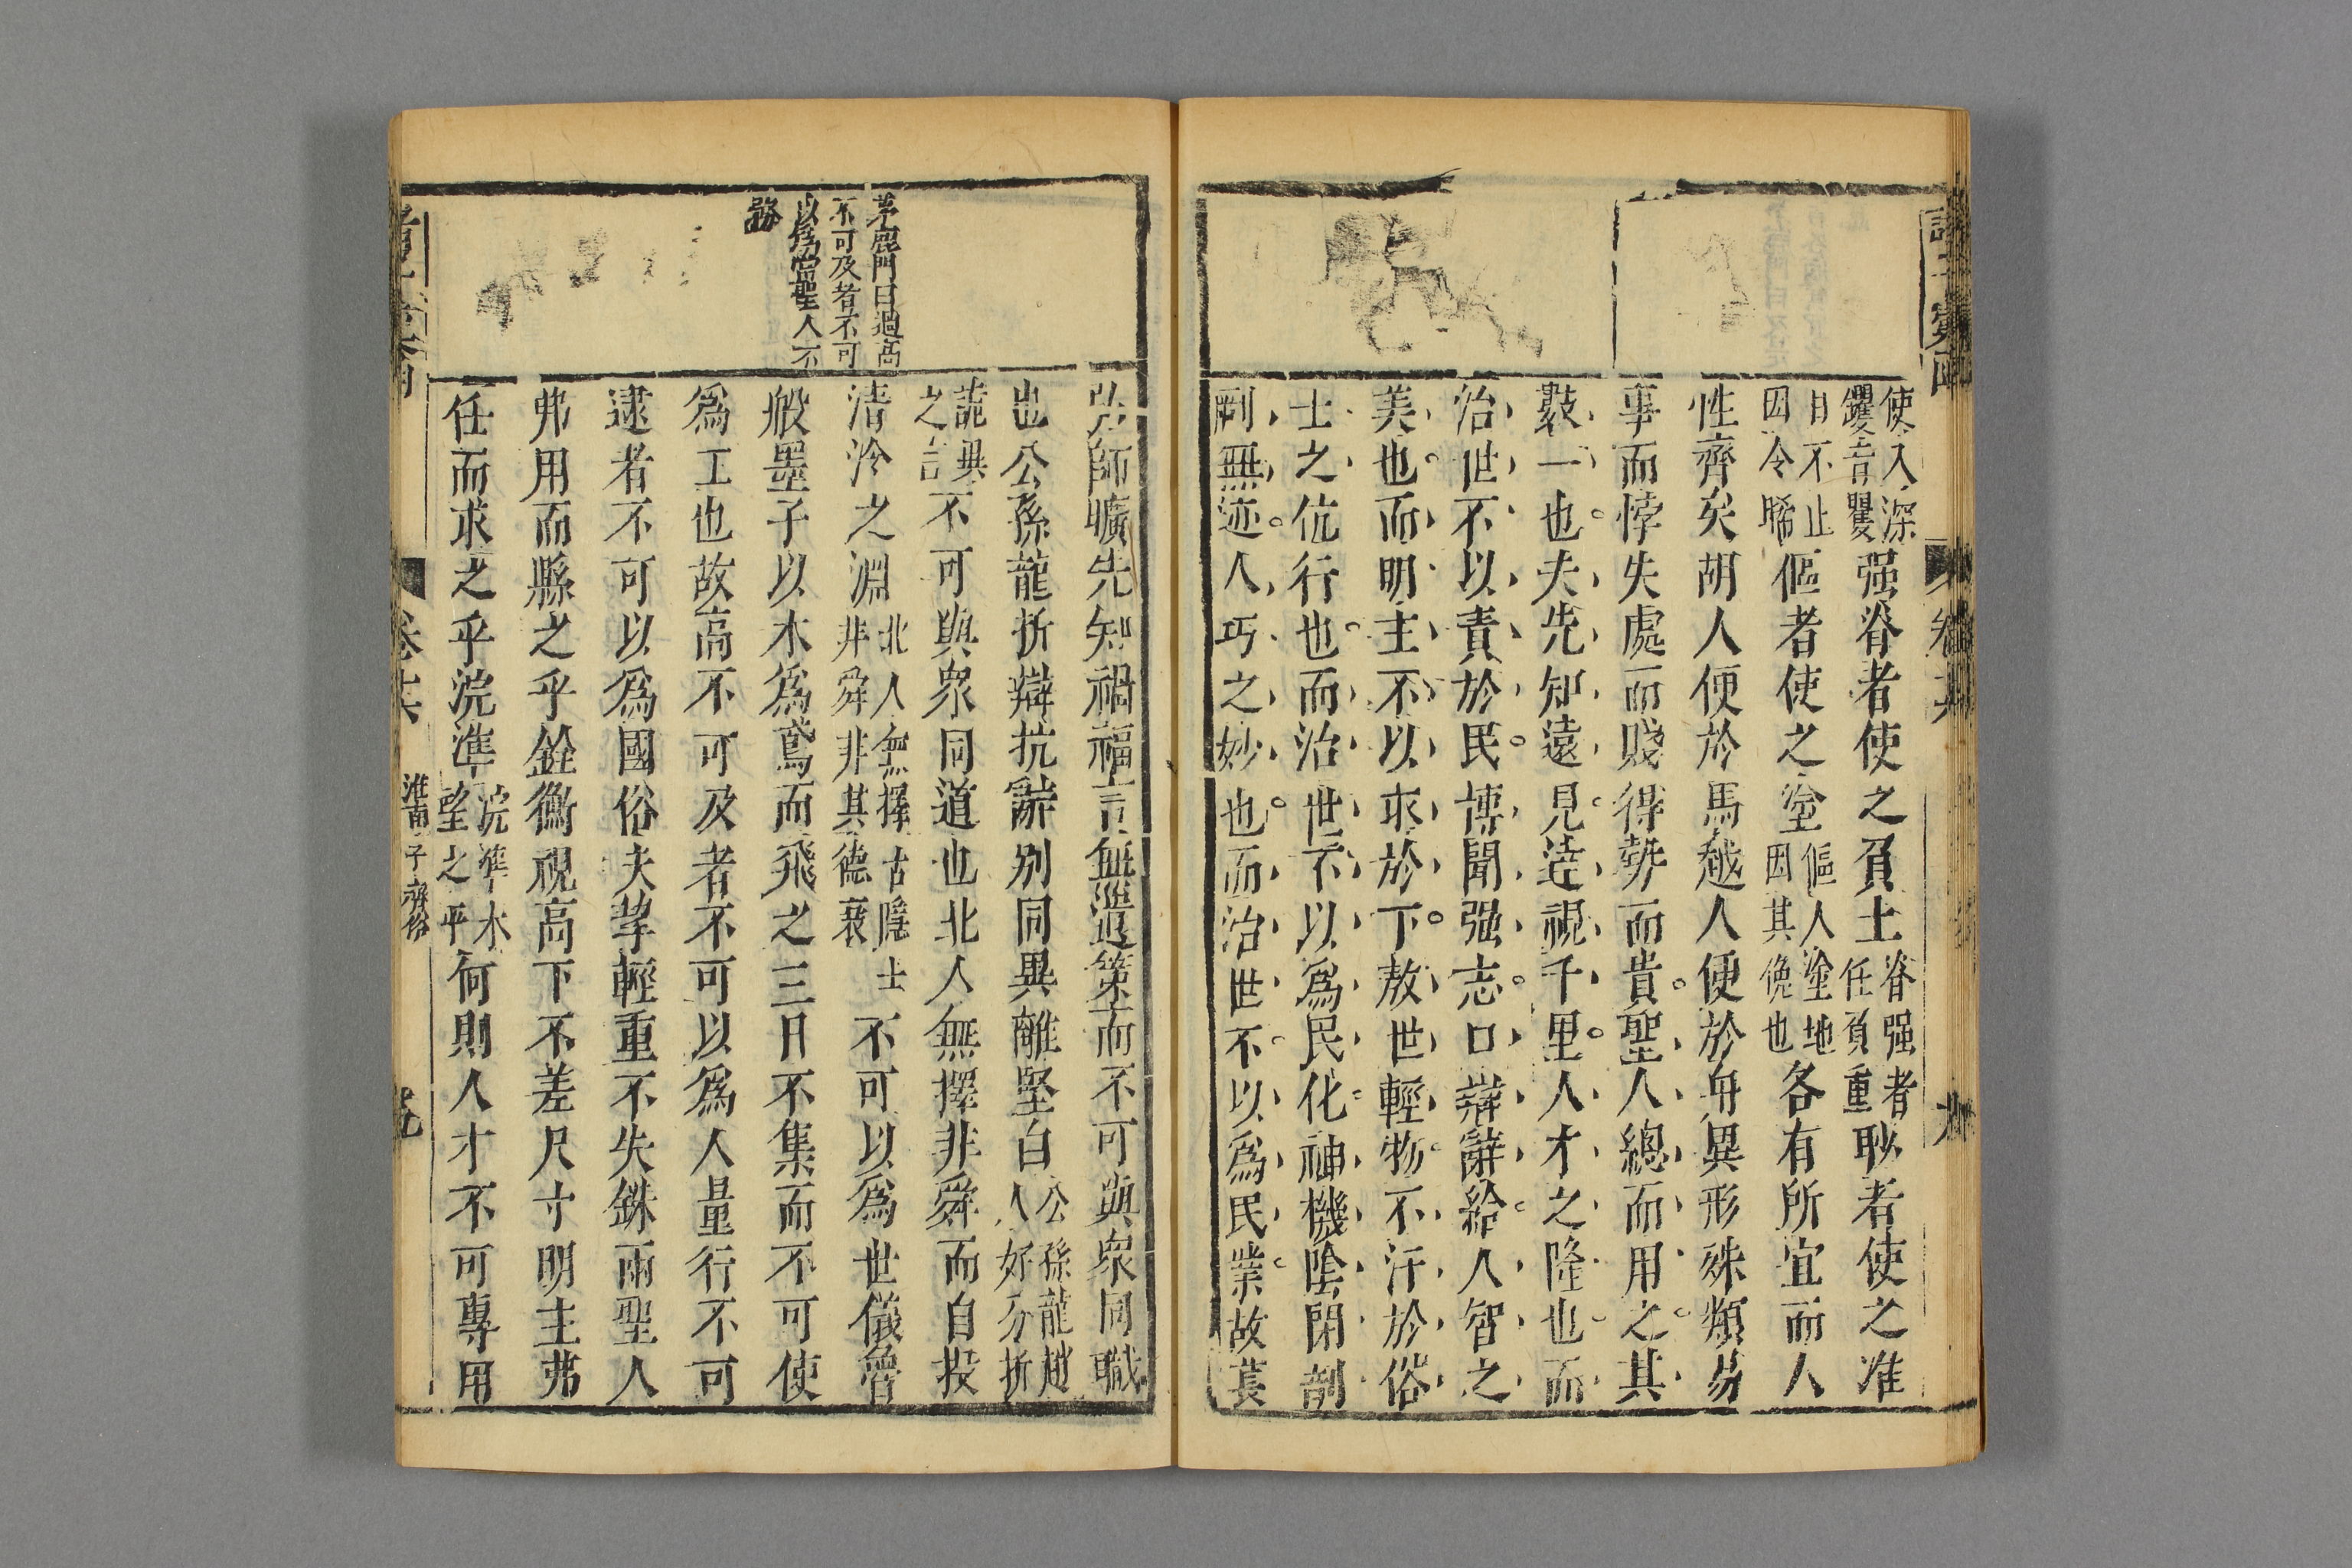 使入深钁音瞿强脊者使之負土脊强者任負重眇者使之准
目不止因令睎傴者使之塗傴人塗地因其俛也各有所宜而人
性齊矣胡人便於馬越人便於舟異形殊類易
事而悖失處而賤得勢而貴聖人總而用之其
數一也夫先知遠見達視千里人才之隆也而
治世不以責於民博聞强志口辯辭給人智之
美也而明主不以求於下敖世輕物不汙於俗
士之伉行也而治世不以爲民化神機陰閉剖
劂無迹人巧之妙也而治世不以爲民業故萇
弘師曠先知禍福言無遺策而不可與衆同職
也公孫龍折辯抗辭别同異離堅白公孫龍趙人好分析
詭異之言不可與衆同道也北人無擇非舜而自投
清泠之淵北人無擇古隱士非舜非其德衰不可以爲世儀魯
般墨子以木爲鳶而飛之三日不集而不可使
爲工也故高不可及者不可以爲人量行不可
逮者不可以爲國俗夫挈輕重不失銖兩聖人
弗用而縣之乎銓衡視高下不差尺寸明主弗
任而求之乎浣準浣準水望之平何則人才不可專用
茅鹿門曰過高
不可及者不可
以爲當聖人不
務
淮南子齊俗